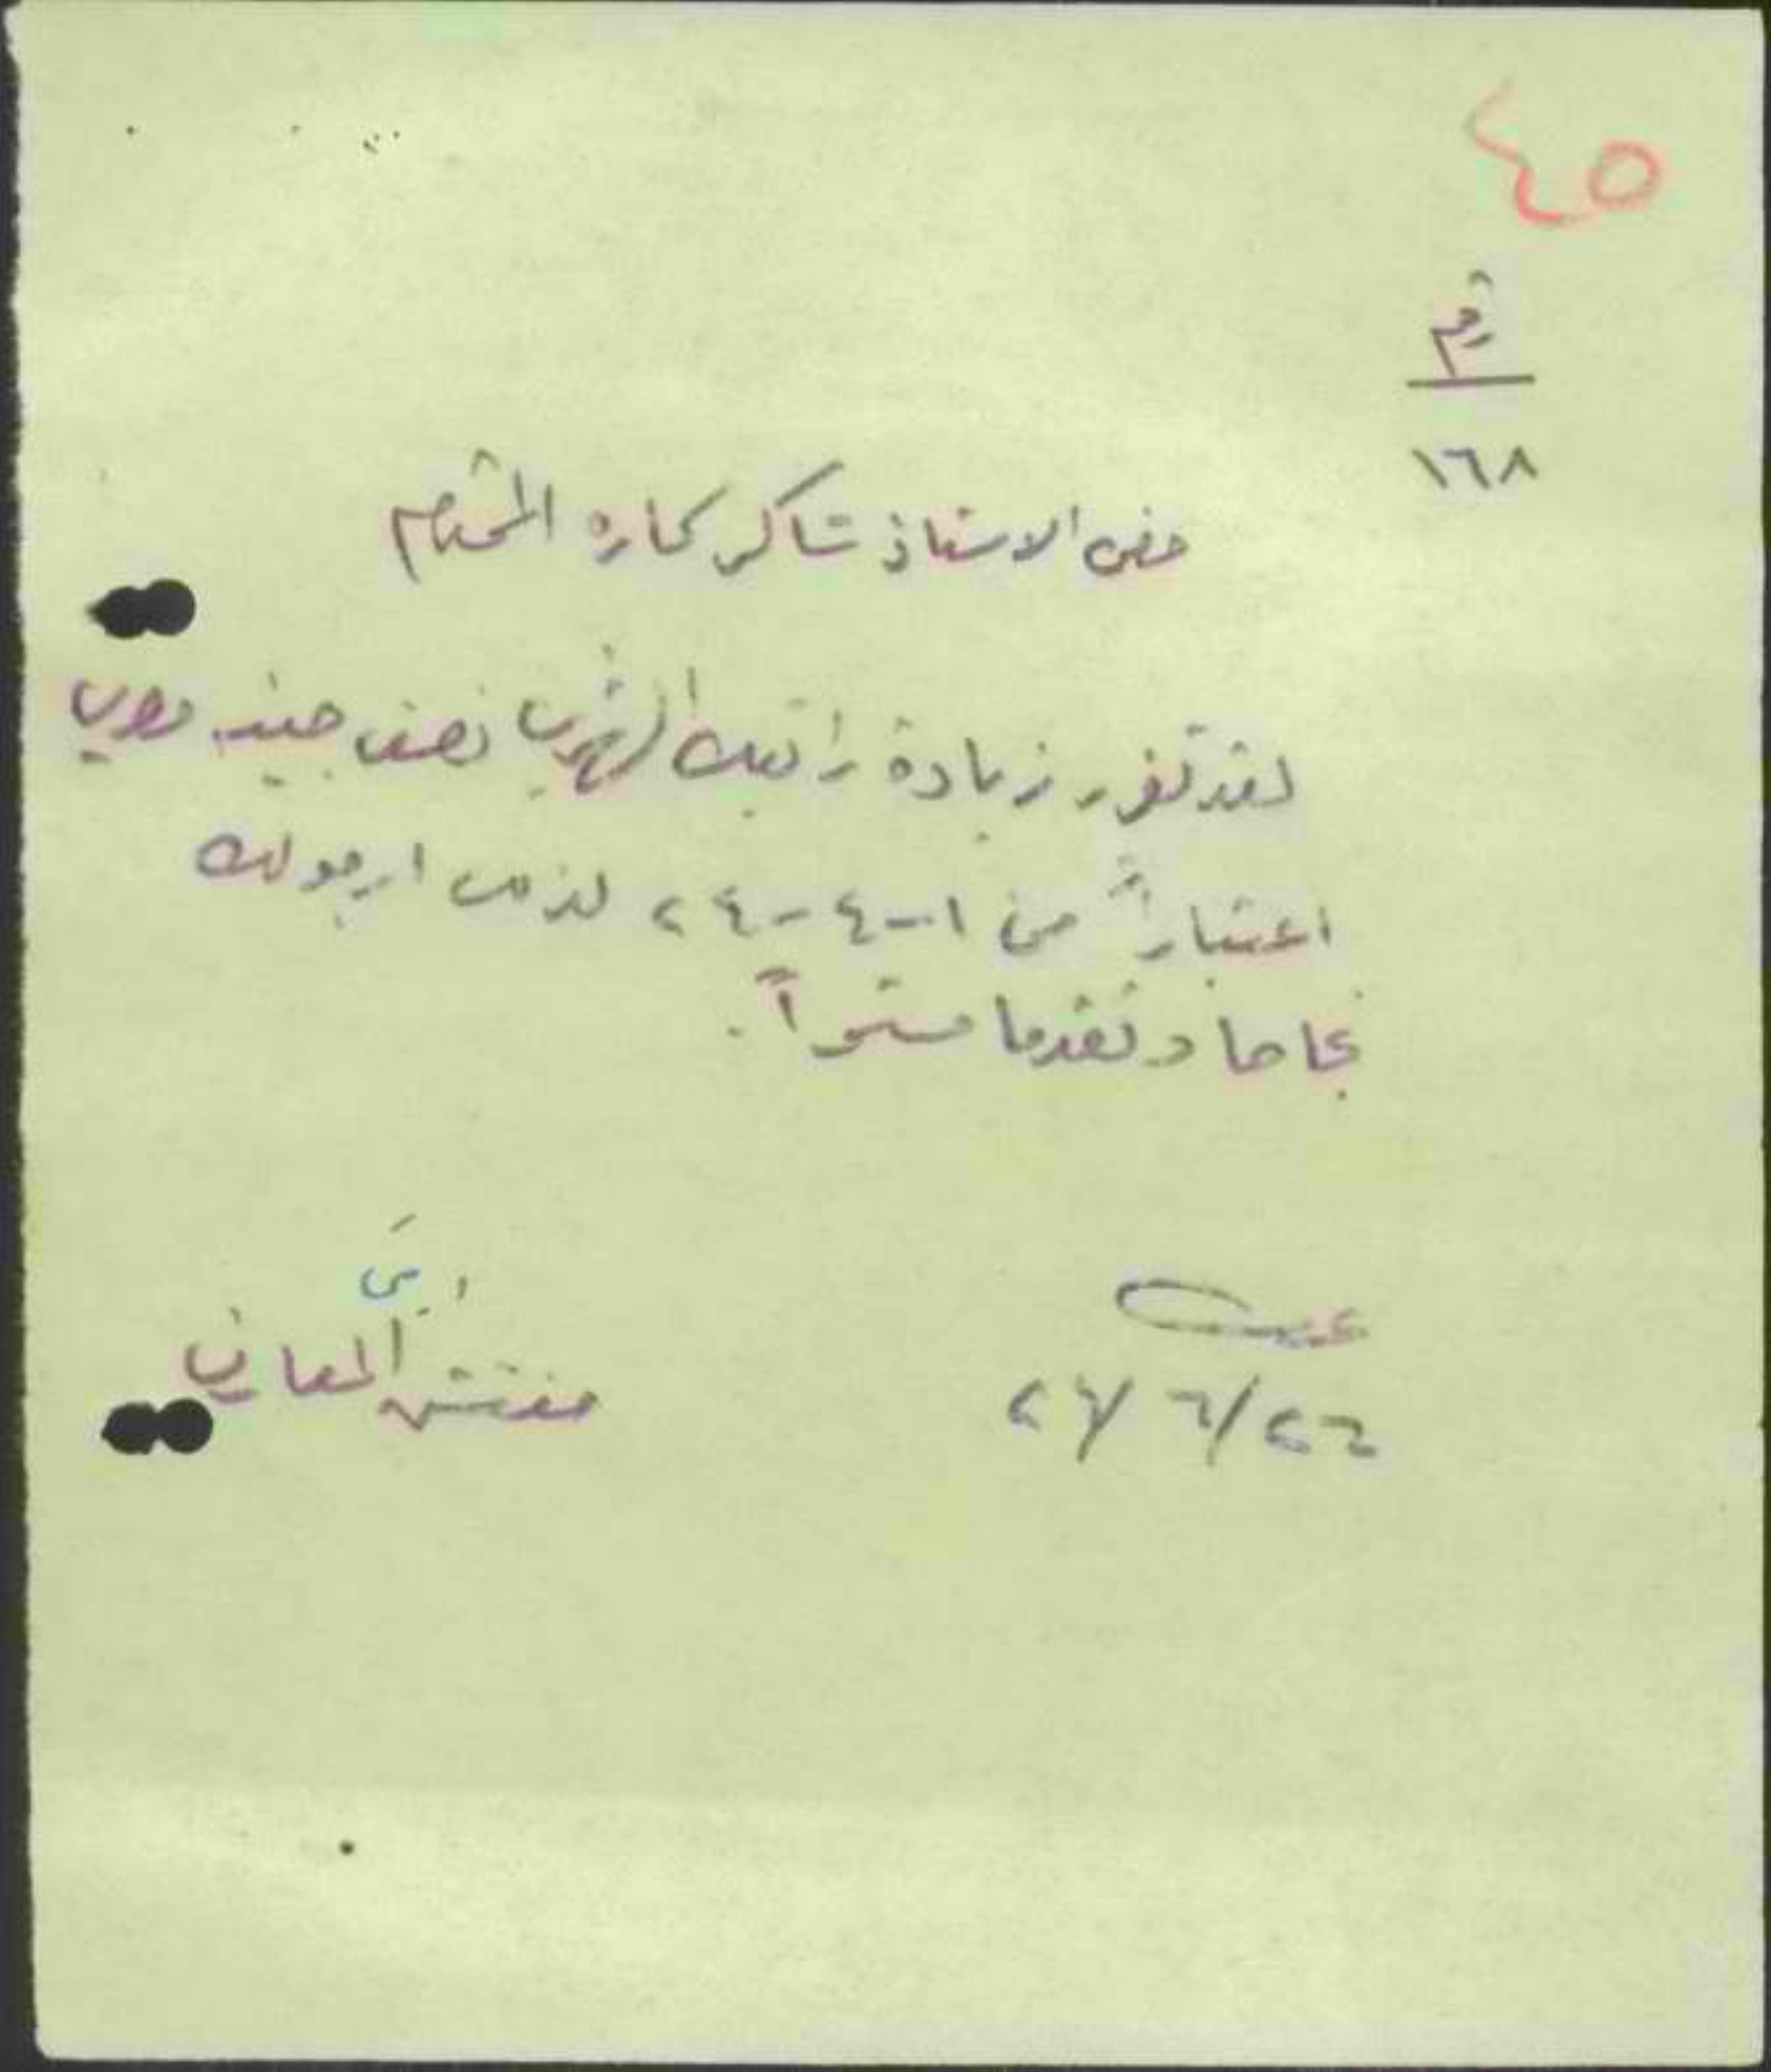 ٤٥
رقم
١٦٨
حضرة الاستاذ شاكر المحترم
لقد تقرر زيادة راتبك الشهري نصف جنيه مصري
اعتباراً من ١-٤-٢٤ لذلك ارجو لك
نجاحا وتقدما مستمراً.
٢٤/٦/٢٦
مفتش المعارف